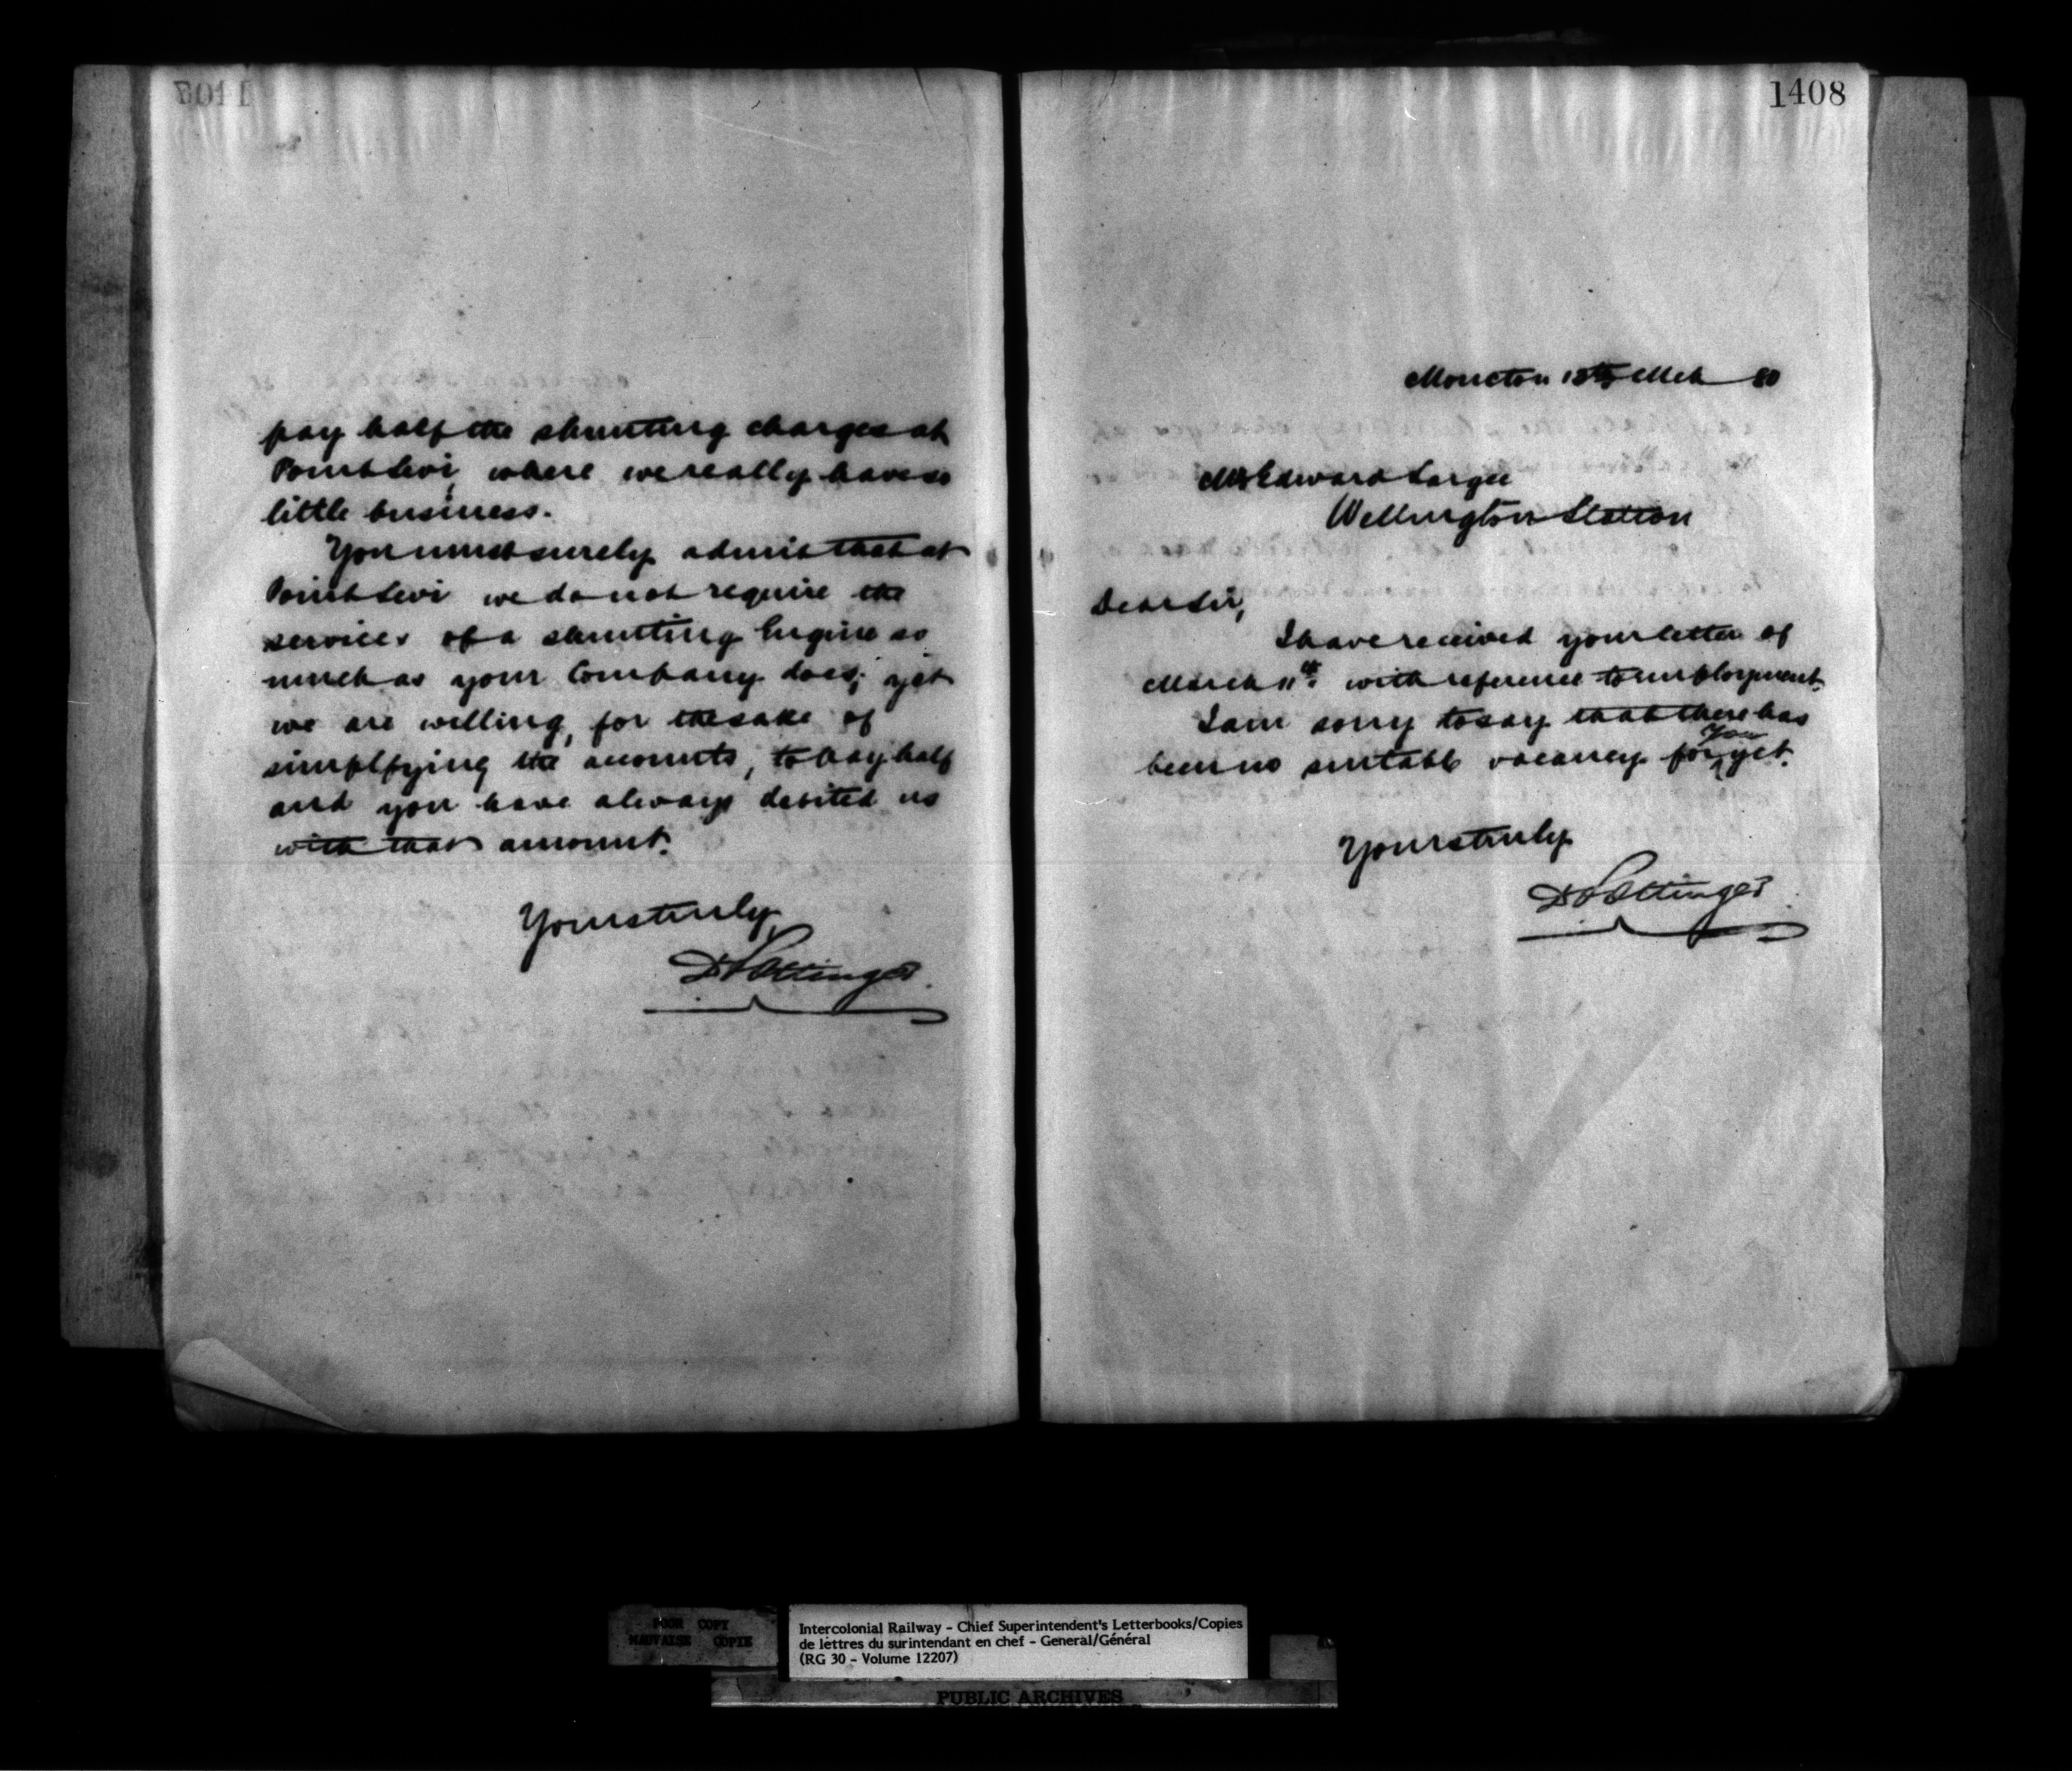 pay half the shunting charges at
Point Levi, where we really have so
little business.
You must surely admit that at
Point Levi we do not require the
services of a shunting Engine so
much as your Company does; yet
we are willing, for the sake of
simplfying the accounts, to pay half
and you have always debited us
with that amount.
Yours truly,
D Pottinger.
1408
Moncton 13th Mch 80
Mr Edward Largee
Wellington Station
Dear Sir,
I have received your letter of
March 11th. with reference to employment.
I am sorry to say that there has
been no suitable vacancy for you yet.
Yours truly
D Pottinger.
POOR COPY
MAUVAISE COPIE
Intercolonial Railway - Chief Superintendent's Letterbooks/Copies
de lettres du surintendant en chef - General/Général
(RG 30 - Volume 12207)
PUBLIC ARCHIVES